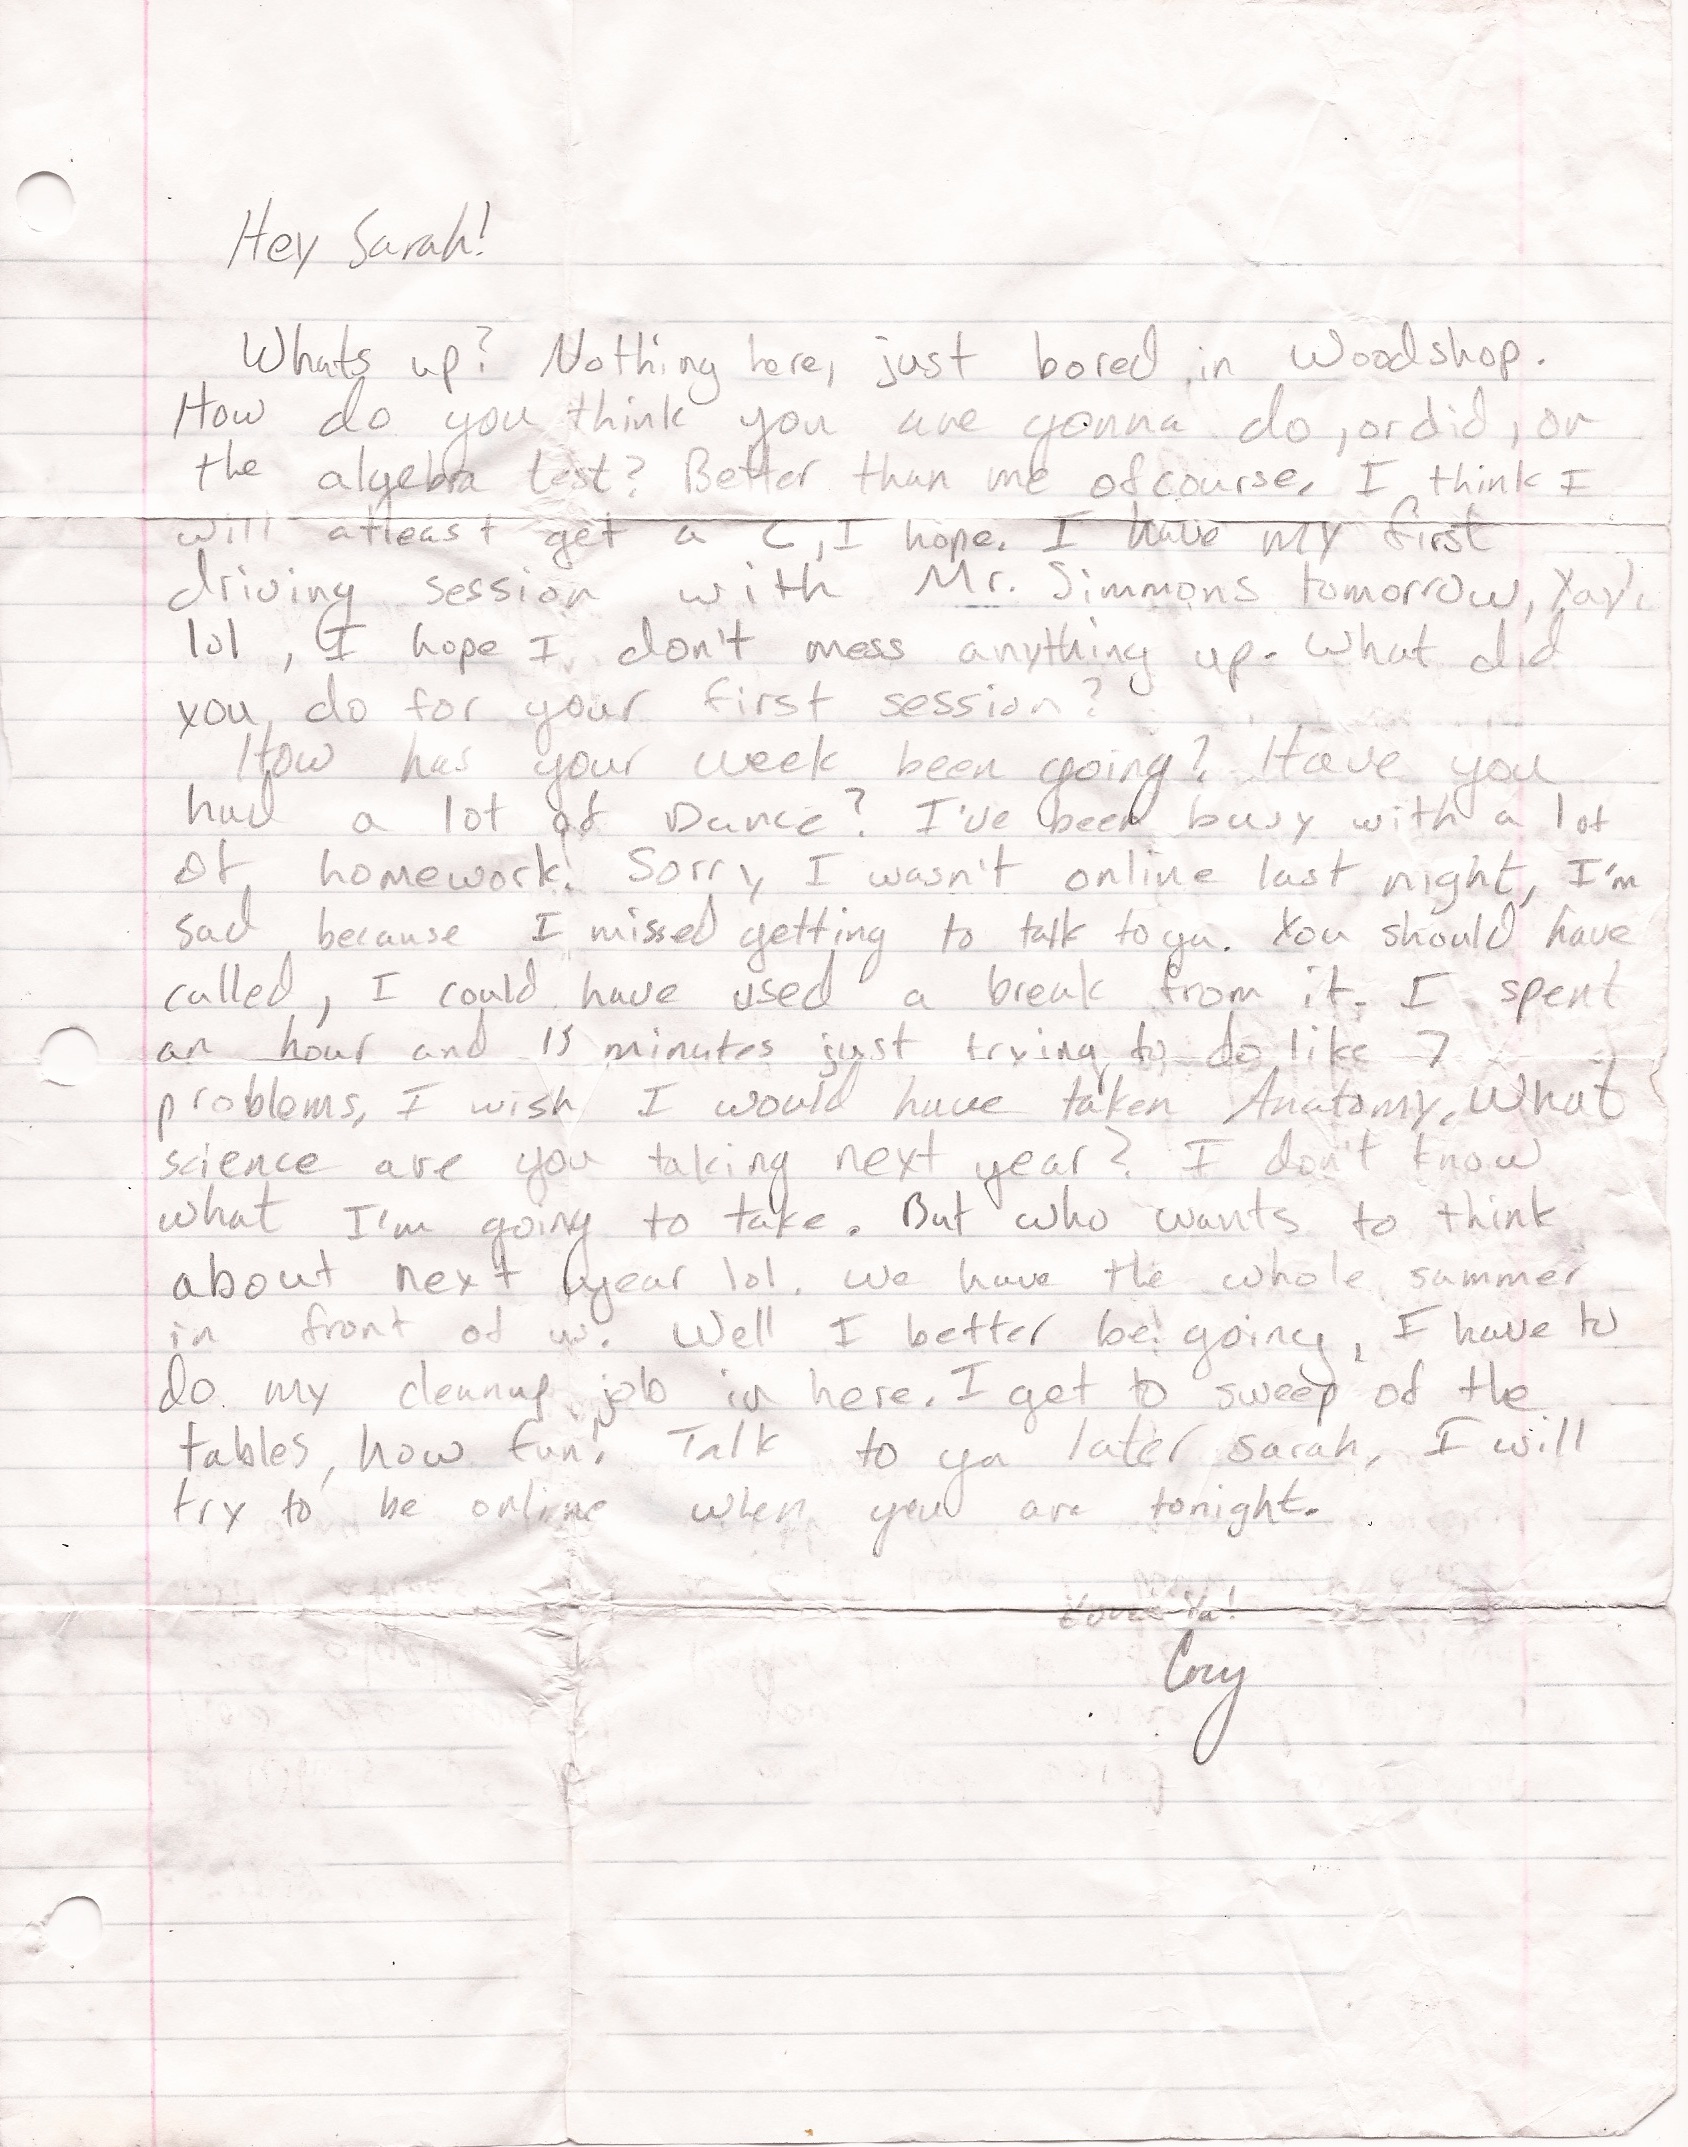 Hey Sarah!
Whats up? Nothing here, just bored in Woodshop.
How do you think you are gonna do, or did, on
the algebra test? Better than me ofcourse. I think I
will atleast get a C, I hope. I have my first
driving session with Mr. Simmons tomorrow, Yay!
lol, I hope I don't mess anything up. What did
you do for your first session?
How has your week been going? Have you
had a lot of Dance? I've been busy with a lot
of homework. Sorry I wasn't online last night, I'm
sad because I missed getting to talk to ya. You should have
called, I could have used a break from it. I spent
an hour and 15 minutes just trying to do like 7
problems, I wish I would have taken Anatomy. What
science are you taking next year? I don't know
what I'm going to take. But who wants to think
about next year lol. we have the whole summer
in front of us. Well I better be going, I have to
do my cleanup job in here. I get to sweep of the
tables, how fun! Talk to ya later Sarah, I will
try to be online when you are tonight.
Ya!
Cory